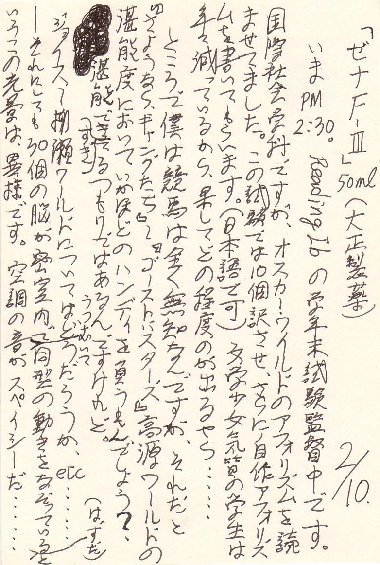 「ゼナF-Ⅲ」50ml(大正製薬)
2/10.
いま PM 2:30. Reading Ib の学年末試験監督中です。
国際社会学科ですが、オスカー・ワイルドのアフォリズムを読
ませてました。この試験では10個訳させ、さらに自作アフォリズ
ムを書いてもらいます。(日本語で可) 文学少女気質の学生は
年々減っているから、果してどの程度のが出るやら……
ところで僕は競馬は全く無知なんですが、それだと
『さようなら、ギャングたち』〜『ゴーストバスターズ』高源ワールドの
湛能度においていかほどのハンディを負うもんでしょう?
湛能できてるつもりではあるんですけれど。
(はずだ)
ジョイス〜柳瀬ワールドについてはどうだろうか、etc……
―それにしても30個の脳が密室内でうつむいて同型の動きをなぞっていると
いうこの光景は、異様です。空調の音がスペイシーだ……